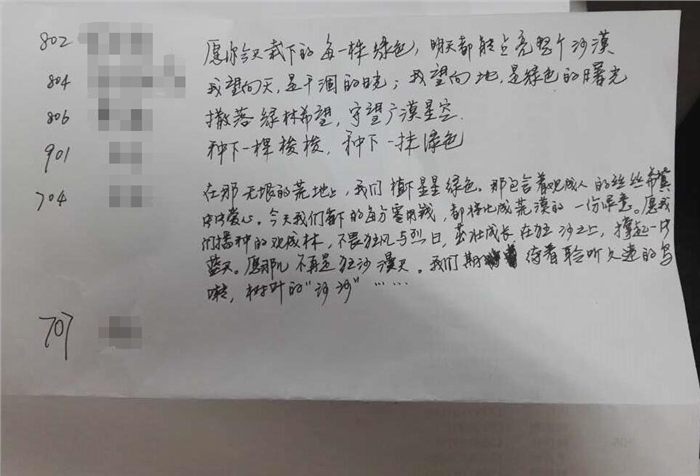 802 愿你今天栽下的每一株绿色，明天都能点亮整个沙漠
804 我望向天，是干涸的目光；我望向地，是绿色的曙光
806 撒落绿林希望，守望广漠星空.
901 种下一棵梭梭，种下一抹绿色
704 在那无垠的荒地上，我们播下星星绿色。那包含着观成人的丝丝希冀
爱心。今天我们每下的每分零用钱，都转化成荒漠的一份绿意。愿我
们播种的观成林，不畏狂风与烈日，茁壮成长在狂沙之上，撑起一片
蓝天。愿那儿不再是狂沙漫天。我们期待着聆听久违的鸟
啼，树叶的“沙沙”……
707